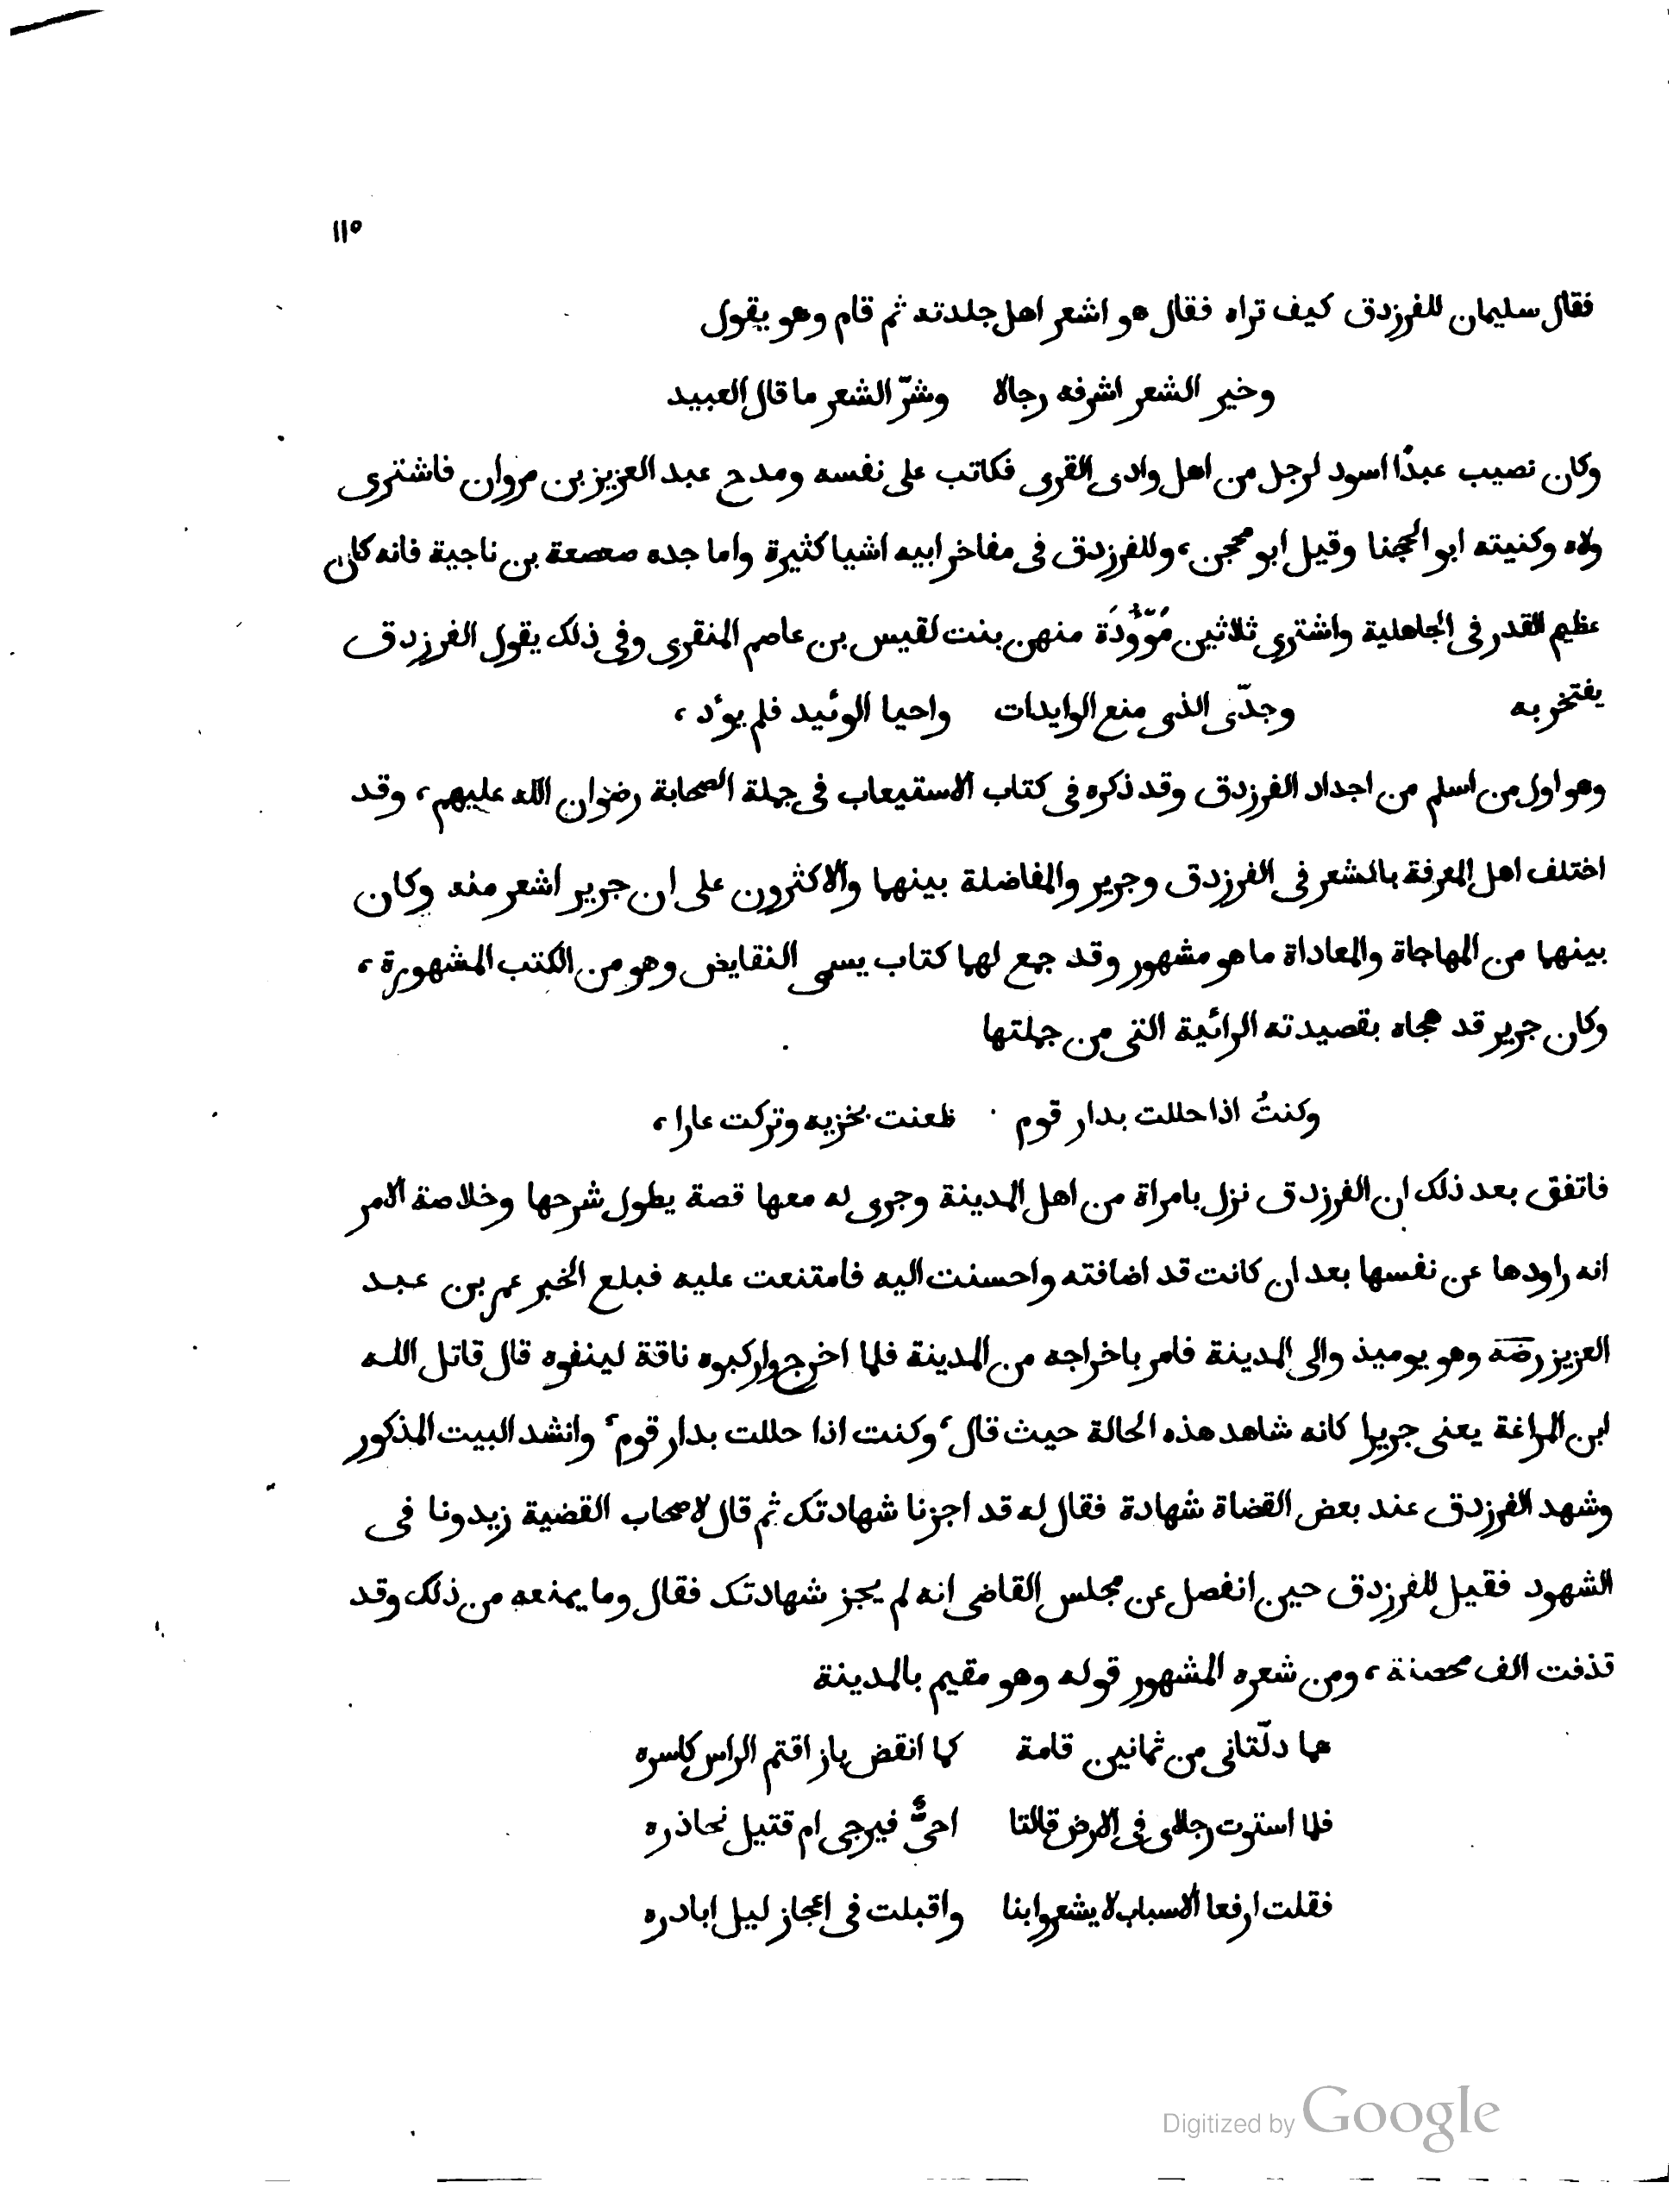 ١١٥
فقال سليمان للفرزدق كيف تراه فقال هو اشعر اهل جلدته ثم قام وهو يقول
وخير الشعر اشرفه رجالا وشرّ الشعر ما قال العبيد
وكان نصيب عبدًا اسود لرجل من اهل وادى القرى فكاتب على نفسه ومدح عبد العزيز بن مروان فاشترى
ولاه وكنيته ابو الحجنا وقيل ابو محجن، وللفرزدق فى مفاخر ابيه اشيا كثيرة واما جده صعصعة بن ناجية فانه كان
عظيم القدر فى الجاهلية واشترى ثلاثين مَوْؤُدَة منهن بنت لقيس بن عاصم المنقرى وفى ذلك يقول الفرزدق
يفتخر به وجدّى الذى منع الوايدات واحيا الوئيد فلم يوُد،
وهو اول من اسلم من اجداد الفرزدق وقد ذكره فى كتاب الاستيعاب فى جملة الصحابة رضوان الله عليهم، وقد
اختلف اهل المعرفة بالشعر فى الفرزدق وجرير والمفاضلة بينهما والاكثرون على ان جرير اشعر منه وكان
بينهما من المهاجاة والمعاداة ما هو مشهور وقد جمع لهما كتاب يسمى النقايض وهو من الكتب المشهورة،
وكان جرير قد هجاه بقصيدته الرائية التى من جملتها
وكنتُ اذا حللت بدار قوم ظعنت بخزيه وتركت عارا،
فاتفق بعد ذلك ان الفرزدق نزل بامراة من اهل المدينة وجرى له معها قصة يطول شرحها وخلاصة الامر
انه راودها عن نفسها بعد ان كانت قد اضافته واحسنت اليه فامتنعت عليه فبلع الخبر عمر بن عبد
العزيز رضه وهو يوميذ والى المدينة فامر باخراجه من المدينة فلما اخرج واركبوه ناقة لينفوه قال قاتل الله
ابن المراغة يعنى جريرا كانه شاهد هذه الحالة حيث قال، وكنت اذا حللت بدار قوم، وانشد البيت المذكور
وشهد الفرزدق عند بعض القضاة شهادة فقال له قد اجزنا شهادتك ثم قال لاصحاب القضية زيدونا فى
الشهود فقيل للفرزدق حين انفصل عن مجلس القاضى انه لم يجز شهادتك فقال وما يمنعه من ذلك وقد
قذفت الف محصنة، ومن شعره المشهور قوله وهو مقيم بالمدينة
هما دلّتانى من ثمانين قامة كما انقض باز اقتم الراس كاسره
فلما استوت رجلاى فى الارض قالتا احىٌّ فيرجى ام قتيل نحاذره
فقلت ارفعا الاسباب لا يشعروا بنا واقبلت فى اعجاز ليل ابادره
Digitized by Google